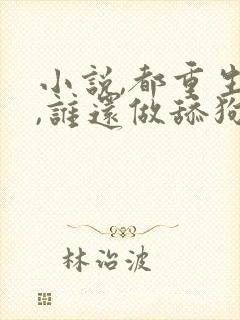 小說,都重生
,誰還做舔狗
林治波